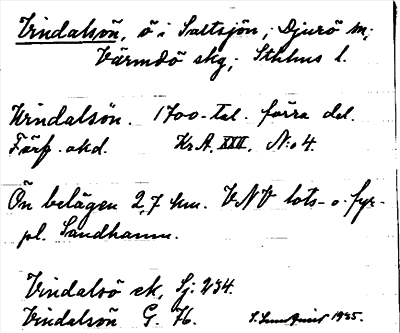 Vindalsön, ö i Saltsjön; Djurö sn;
Värmdö skg; Sthlms l.
Windalsön. 1700-tal. förra del.
Förf. okd. Kr.A. XXII. N:o 4.
Ön belägen 2,7 km. VNV lots- o. fyr-
pl. Sandhamn.
Vindalsö ek, Sj: 234.
Vindalsön G. 76.
1935.